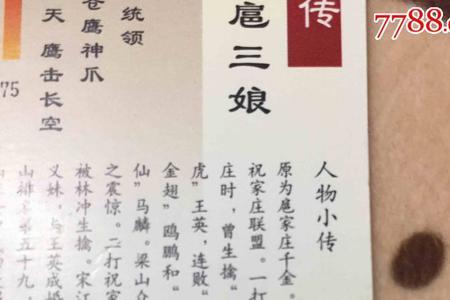 7788.c
传
扈三娘
统领
苍鹰神爪
天 鹰击长空
75
人物小传
原为扈家庄千金。
祝家庄联盟。一打
庄时，曾生擒“
虎”王英，连败“
金翅”鸥鹏和“
仙”马麟。梁山众
之震惊。二打祝家
被林冲生擒。宋江
义妹，与王英成婚
山排名第五十九